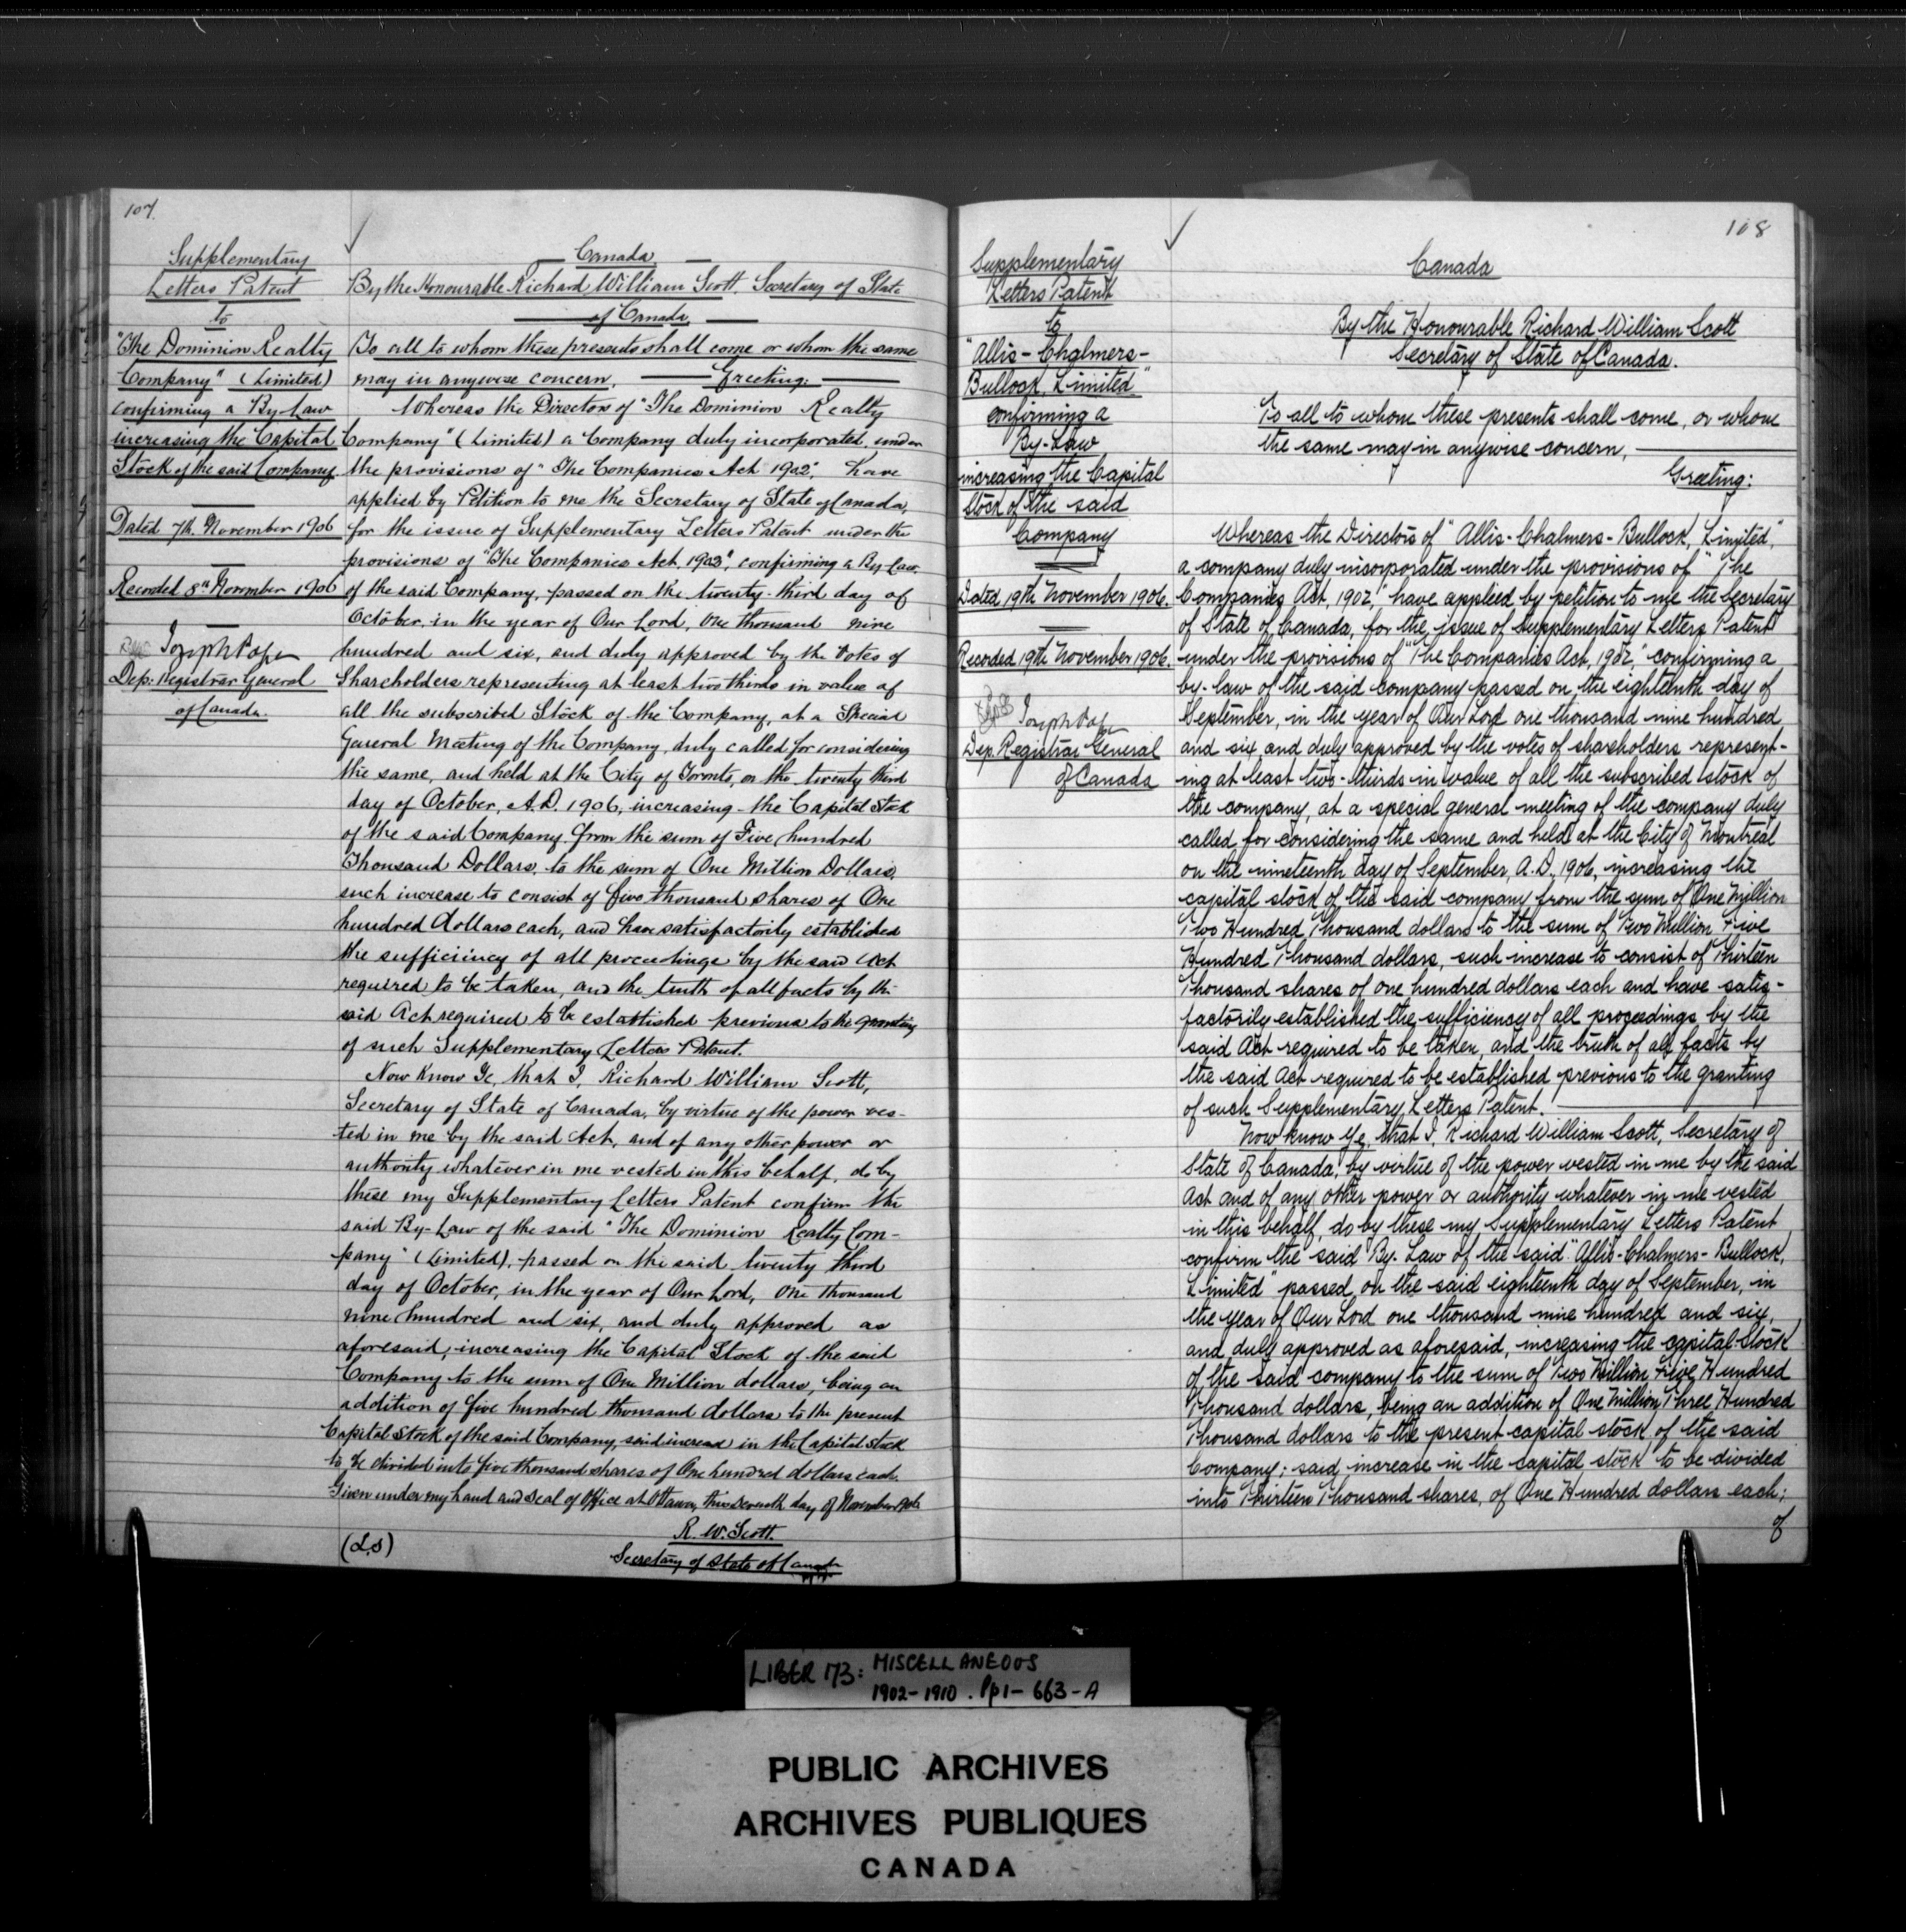 107.
Supplementary
Letters Patent
to
"The Dominion Realty
Company" (Limited)
confirming a By Law
increasing the Capital
Stock of the said Company
Dated 7th. November 1906
Recorded 8th November 1906
Joseph Pope
Dep: Registrar General
of Canada.
Canada
By the Honourable Richard William Scott. Secretary of State
of Canada
To all to whom these presents shall come or whom the same
may in anywise concern, Greeting:
Whereas the Directors of "The Dominion Realty
Company" (Limited) a Company duly incorporated under
the provisions of "The Companies Act 1902", have
applied by Petition to me the Secretary of State of Canada,
for the issue of Supplementary Letters Patent under the
provisions of "The Companies Act, 1902", confirming a By-Law
of the said Company, passed on the twenty-third day of
October, in the year of Our Lord, one thousand nine
hundred and six, and duly approved by the votes of
Shareholders representing at least two thirds in value of
all the subscribed Stock of the Company, at a Special
General Meeting of the Company, duly called for considering
the same, and held at the City of Toronto, on the twenty third
day of October, A.D. 1906, increasing the Capital Stock
of the said Company from the sum of Five hundred
Thousand Dollars, to the sum of One Million Dollars,
such increase to consist of five thousand shares of One
hundred dollars each, and have satisfactorily established
the sufficiency of all proceedings by the said Act
required to be taken, and the truth of all facts by the
said Act required to be established previous to the granting
of such Supplementary Letters Patent.
Now Know Ye, that I, Richard William Scott,
Secretary of State of Canada, by virtue of the power ves-
ted in me by the said Act, and of any other power or
authority whatever in me vested in this behalf, do by
these my Supplementary Letters Patent confirm the
said By-Law of the said "The Dominion Realty Com-
pany" (Limited), passed on the said twenty third
day of October, in the year of Our Lord, One thousand
nine hundred and six, and duly approved as
aforesaid, increasing the Capital Stock of the said
Company to the sum of One Million dollars, being an
addition of five hundred thousand dollars to the present
Capital Stock of the said Company, said increase in the Capital Stock
to be divided into five thousand shares of One hundred dollars each.
Given under my hand and Seal of Office at Ottawa, this seventh day of November 1906
R. W. Scott.
(L.S) Secretary of State of Canada
108
Supplementary
Letters Patent
to
"Allis-Chalmers-
Bullock, Limited"
confirming a
By-Law
increasing the Capital
Stock of the said
Company
Dated 19th November 1906.
Recorded 19th November 1906.
Joseph Pope
Dep. Registrar General
of Canada
Canada
By the Honourable Richard William Scott
Secretary of State of Canada.
To all to whom these presents shall come, or whom
the same may in anywise concern,
Greeting:
Whereas the Directors of "Allis-Chalmers-Bullock, Limited",
a company duly incorporated under the provisions of "The
Companies Act, 1902," have applied by petition to me the Secretary
of State of Canada, for the issue of Supplementary Letters Patent
under the provisions of "The Companies Act, 1902," confirming a
by-law of the said company passed on the eighteenth day of
September, in the year of Our Lord one thousand nine hundred
and six and duly approved by the votes of shareholders represent-
ing at least two-thirds in value of all the subscribed stock of
the company, at a special general meeting of the company duly
called for considering the same and held at the City of Montreal
on the nineteenth day of September, A.D. 1906, increasing the
capital stock of the said company from the sum of One Million
Two Hundred Thousand dollars to the sum of Two Million Five
Hundred Thousand dollars, such increase to consist of Thirteen
Thousand shares of one hundred dollars each and have satis-
factorily established the sufficiency of all proceedings by the
said Act required to be taken, and the truth of all facts by
the said Act required to be established previous to the granting
of such Supplementary Letters Patent.
Now know Ye, that I, Richard William Scott, Secretary of
State of Canada, by virtue of the power vested in me by the said
Act and of any other power or authority whatever in me vested
in this behalf, do by these my Supplementary Letters Patent
confirm the said By-Law of the said "Allis-Chalmers-Bullock,
Limited" passed on the said eighteenth day of September, in
the year of Our Lord one thousand nine hundred and six,
and duly approved as aforesaid, increasing the capital Stock
of the said company to the sum of Two Million Five Hundred
Thousand dollars, being an addition of One Million Three Hundred
Thousand dollars to the present capital stock of the said
Company; said increase in the capital stock to be divided
into Thirteen Thousand shares, of One Hundred dollars each;
of
LIBER 173: MISCELLANEOUS
1902-1910. Pp 1-663-A
PUBLIC ARCHIVES
ARCHIVES PUBLIQUES
CANADA